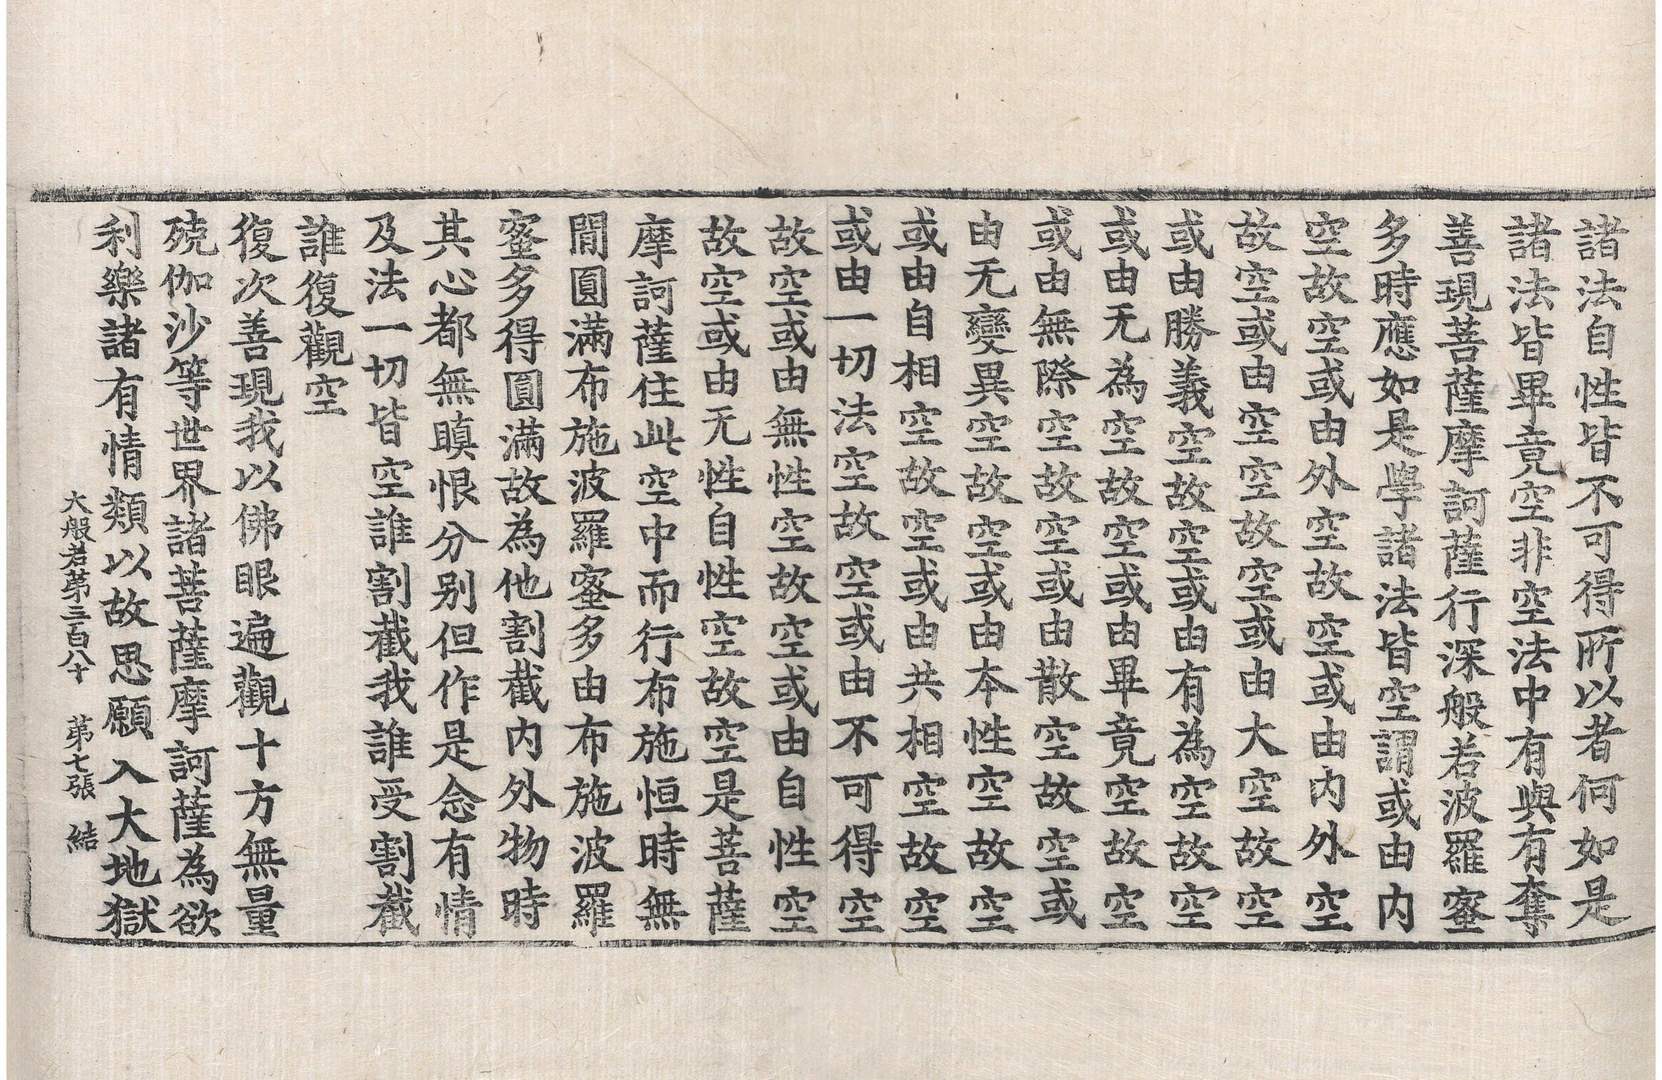 諸法自性皆不可得所以者何如是
諸法皆畢竟空非空法中有與有奪
善現菩薩摩訶薩行深般若波羅蜜
多時應如是學諸法皆空謂或由內
空故空或由外空故空或由內外空
故空或由空空故空或由大空故空
或由勝義空故空或由有為空故空
或由无為空故空或由畢竟空故空
或由無際空故空或由散空故空或
由无變異空故空或由本性空故空
或由自相空故空或由共相空故空
或由一切法空故空或由不可得空
故空或由無性空故空或由自性空
故空或由无性自性空故空是菩薩
摩訶薩住此空中而行布施恒時無
閒圓滿布施波羅蜜多由布施波羅
蜜多得圓滿故為他割截内外物時
其心都無瞋恨分别但作是念有情
及法一切皆空誰割截我誰受割截
誰復觀空
復次善現我以佛眼遍觀十方無量
殑伽沙等世界諸菩薩摩訶薩為欲
利樂諸有情類以故思願入大地獄
大般若第三百八十 第七張 結